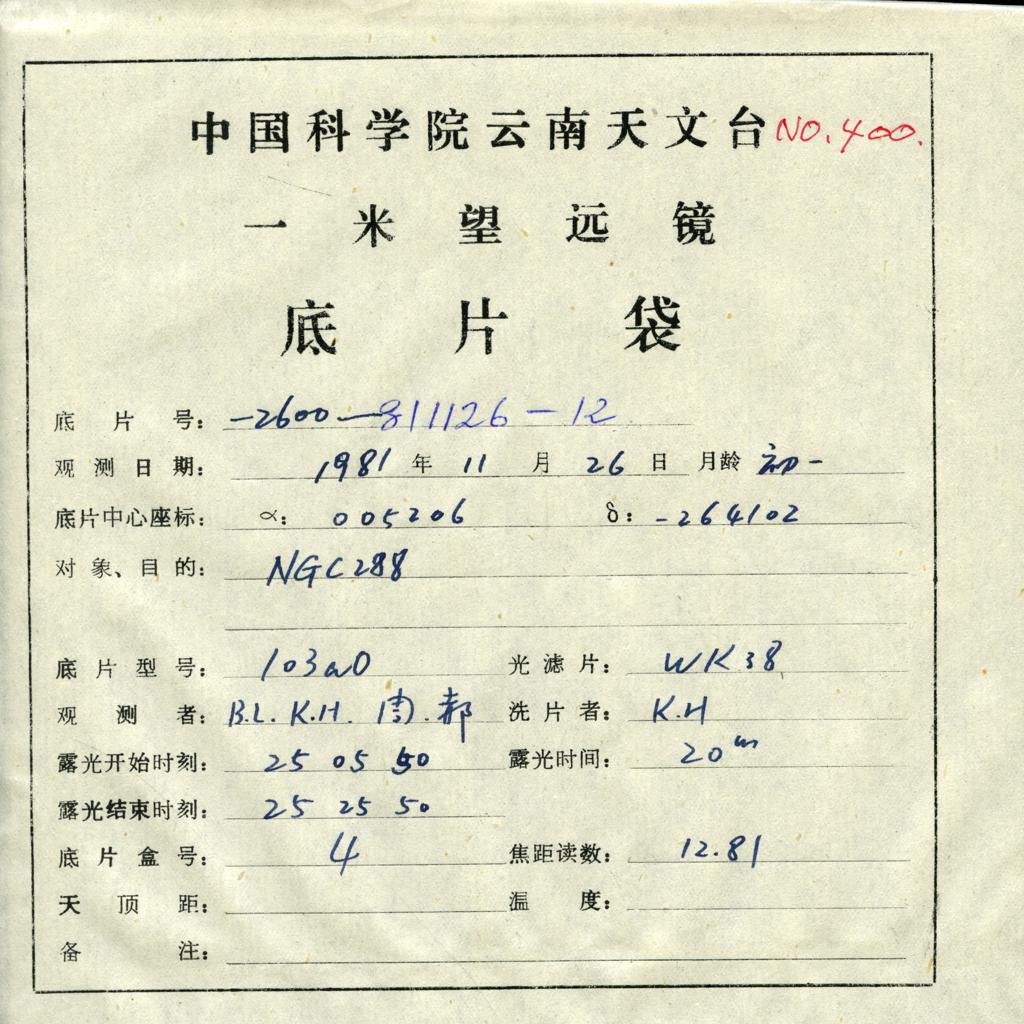 中国科学院云南天文台 NO.400.
一米望远镜
底片袋
底片号: -2600-811126-12
观测日期: 1981年11月26日 月龄 初一
底片中心座标: α: 005206 δ: -264102
对象、目的: NGC288
底片型号: 103aO 光滤片: WK38
观测者: B.L. K.H. 周. 郝 洗片者: K.H
露光开始时刻: 25 05 50 露光时间: 20m
露光结束时刻: 25 25 50
底片盒号: 4 焦距读数: 12.81
天顶距: 温度:
备注: